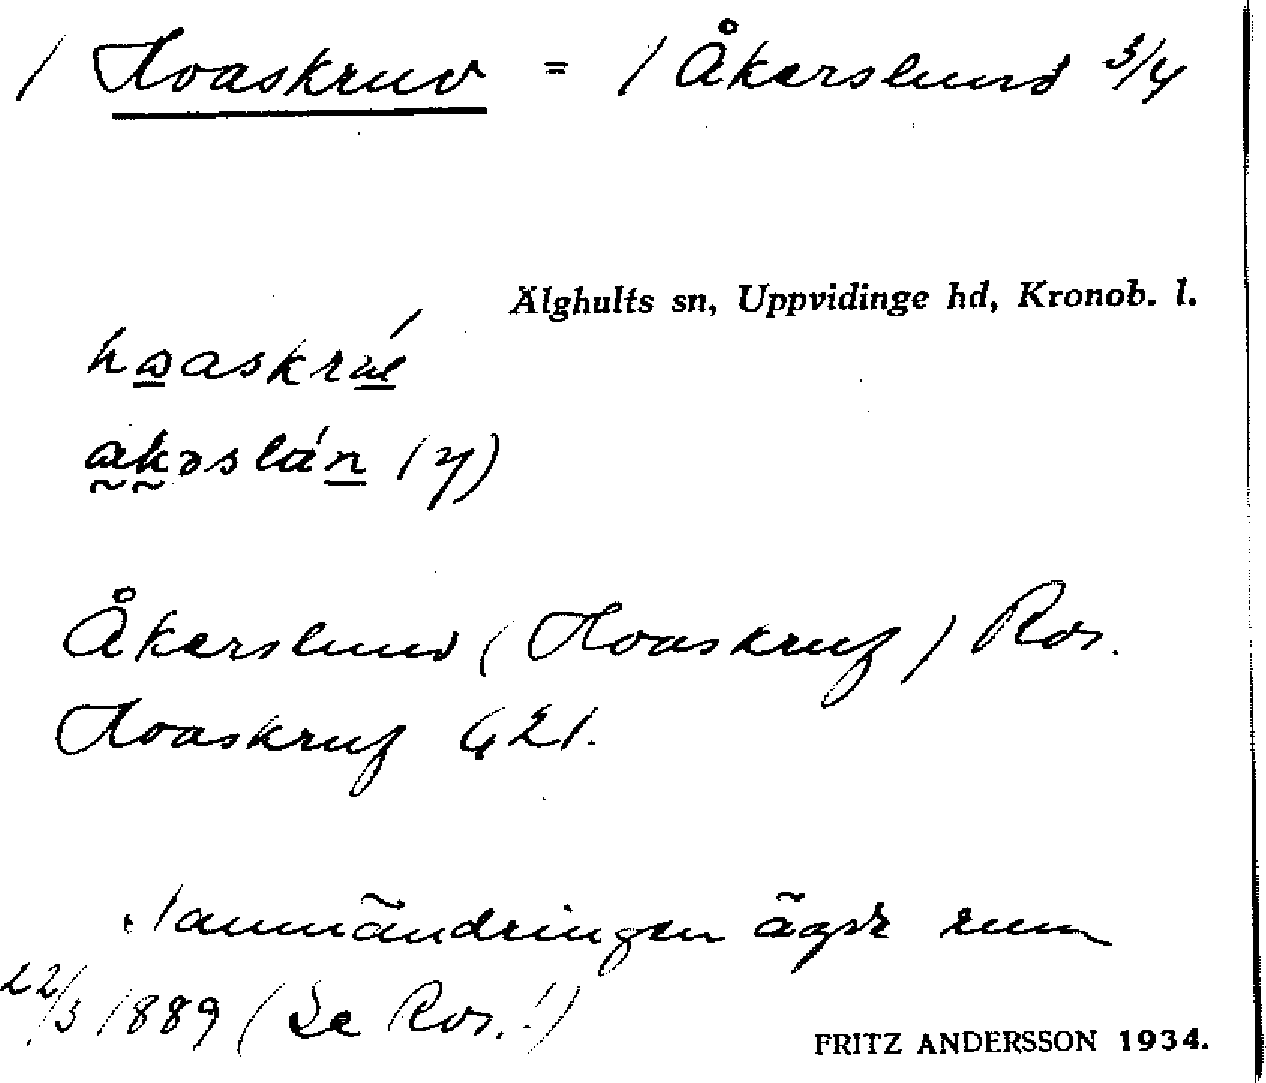 / Hvaskruv = / Åkerslund 3/4
Älghults sn, Uppvidinge hd, Kronob. l.
Åkerslund (Hvaskruf) Ros.
Hvaskruf G21.
Namnändringen ägde rum
22/3 1889 (Se Ros.!)
FRITZ ANDERSSON 1934.